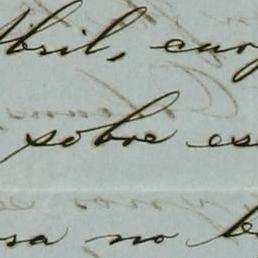 Abril, cuj
sobre es
sa no b